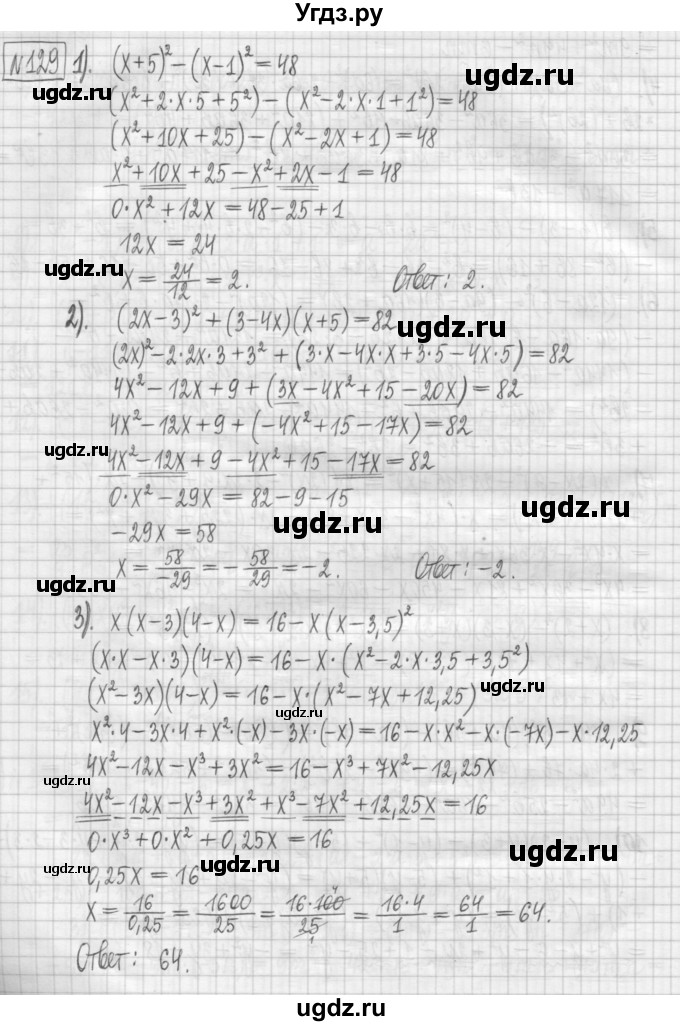 Угдз.ру
№129 1). (x+5)² − (x−1)² = 48
ugdz.ru
ugdz.ru (x²+2·x·5+5²) − (x²−2·x·1+1²) = 48
(x²+10x+25) − (x²−2x+1) = 48
x²+10x+25−x²+2x−1 = 48
0·x²+12x = 48−25+1
12x = 24
ugdz.ru x = 24/12 = 2. Ответ: 2.
ugdz.ru
2). (2x−3)² + (3−4x)(x+5) = 82
ugdz.ru
(2x)²−2·2x·3+3² + (3·x−4x·x+3·5−4x·5) = 82
4x²−12x+9+(3x−4x²+15−20x) = 82
4x²−12x+9+(−4x²+15−17x) = 82
ugdz.ru
4x²−12x+9−4x²+15−17x = 82
0·x²−29x = 82−9−15
ugdz.ru
ugdz.ru
−29x = 58
x = 58/−29 = −58/29 = −2. Ответ: −2.
ugdz.ru
3). x(x−3)(4−x) = 16−x(x−3,5)²
(x·x−x·3)(4−x) = 16−x·(x²−2·x·3,5+3,5²)
(x²−3x)(4−x) = 16−x·(x²−7x+12,25) ugdz.ru
ugdz.ru
x²·4−3x·4+x²·(−x)−3x·(−x) = 16−x·x²−x·(−7x)−x·12,25
4x²−12x−x³+3x² = 16−x³+7x²−12,25x
ugdz.ru
4x²−12x−x³+3x²+x³−7x²+12,25x = 16
0·x³+0·x²+0,25x = 16
ugdz.ru
ugdz.ru 0,25x = 16 ugdz.ru
x = 16/0,25 = 1600/25 = 16·100/25 = 16·4/1 = 64/1 = 64.
Ответ: 64.
ugdz.ru
ugdz.ru